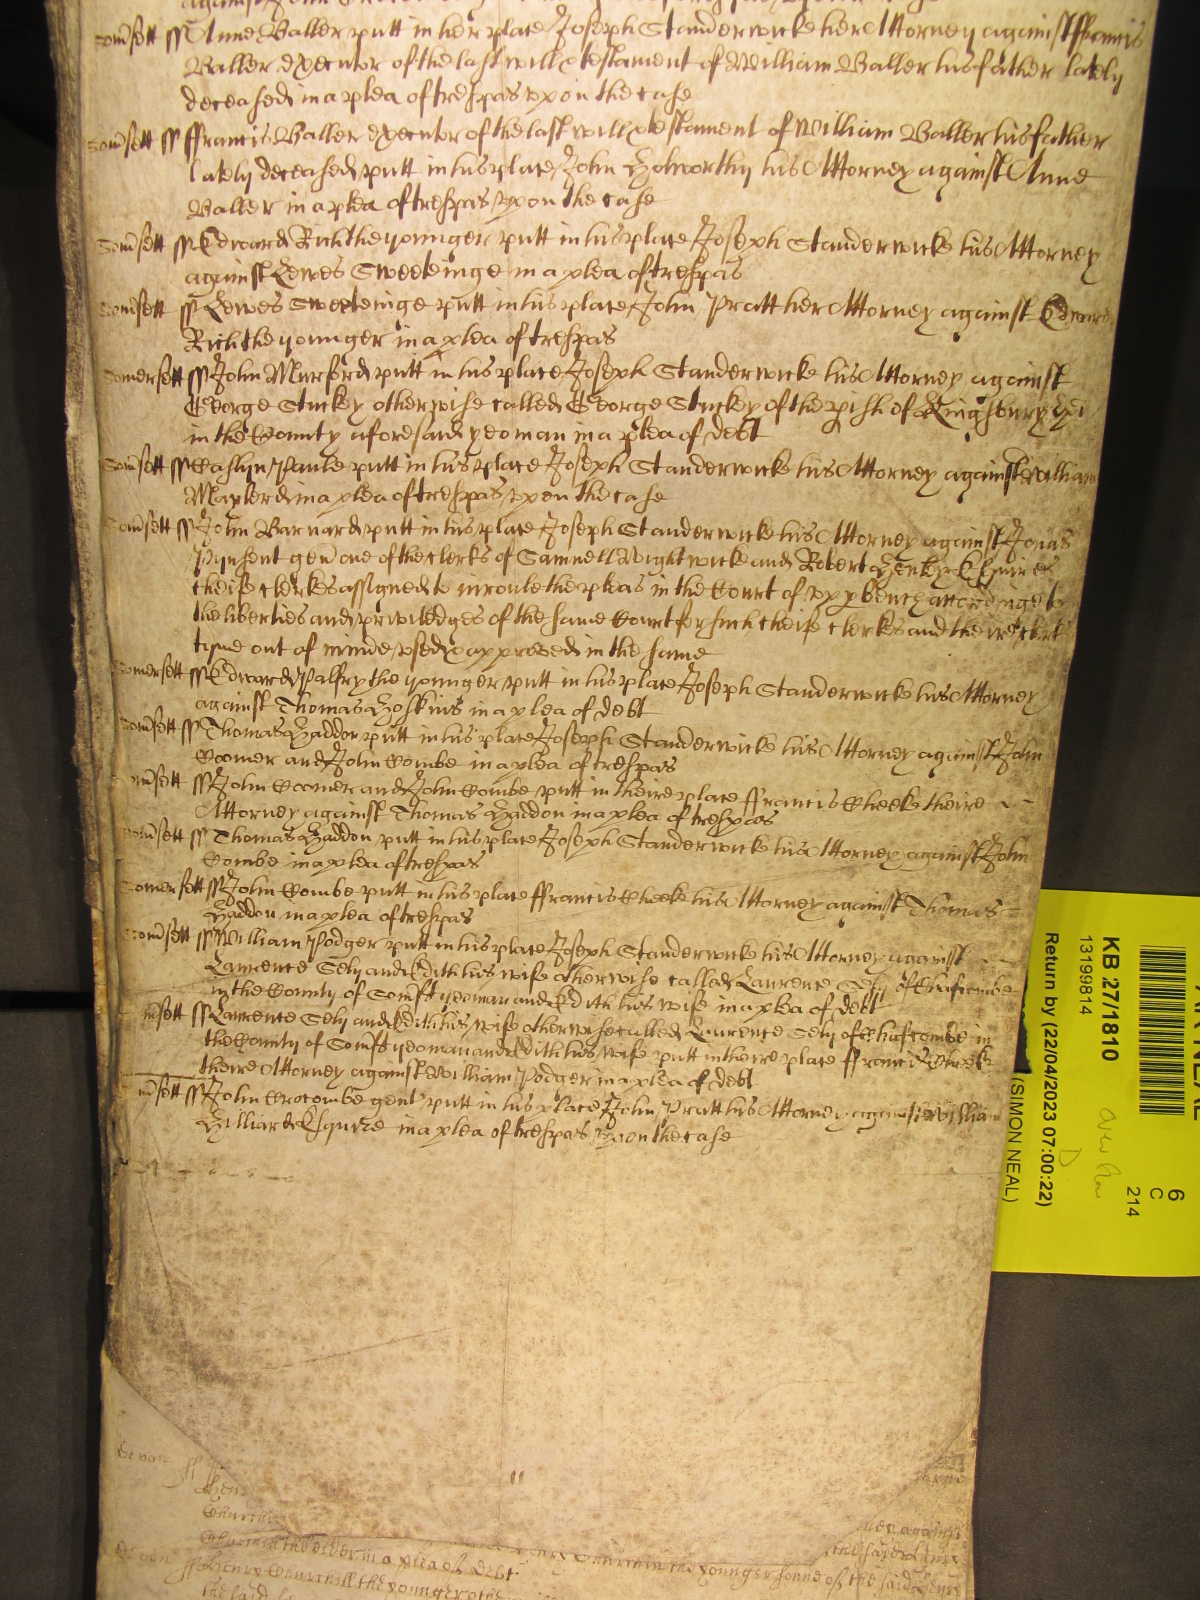 Somsett ss Anne Baller putt in her place Joseph Standerwicke her Attorney against ffrancis
Baller executor of the last will & testament of William Baller his father lately
deceased in a plea of trespas vpon the case
Somsett ss ffrancis Baller executor of the last will & testament of William Baller his father
lately deceased putt in his place John Holworthy his Attorney against Anne
Baller in a plea of trespas vpon the case
Somsett ss Edward Rich the younger putt in his place Joseph Standerwicke his Attorney
against Lewes Sweetinge in a plea of trespas
Somsett ss Lewes Sweetinge putt in his place John Pratt her Attorney against Edward
Rich the younger in a plea of trespas
Somersett ss John Murford putt in his place Joseph Standerwicke his Attorney against
George Stuckey otherwise called George Stuckey of the pish of Kingsbury
in the County aforesaid yeoman in a plea of debt
Somsett ss Paule putt in his place Joseph Standerwicke his Attorney against William
in a plea of trespas vpon the case
Somsett ss John Barnard putt in his place Joseph Standerwicke his Attorney against Jonas
Pynsent gen one of the clerks of Samuell Wightwicke and Robert Henley Esquires
cheife clerkes assigned to inroule the pleas in the Court of vpp bench accordinge to
the liberties and priviledges of the same Court for such cheife clerkes and their clerks
tyme out of minde vsed & approved in the same
Somersett ss Edward Palfry the younger putt in his place Joseph Standerwicke his Attorney
against Thomas Hoskins in a plea of debt
Somsett ss Thomas Haddon putt in his place Joseph Standerwicke his Attorney against John
Coomer and John Combe in a plea of trespas
msett ss John Coomer and John Combe putt in theire place ffrancis Cheeke theire
Attorney against Thomas Haddon in a plea of trespas
Somsett ss Thomas Haddon putt in his place Joseph Standerwicke his Attorney against John
Combe in a plea of trespas
Somersett ss John Combe putt in his place ffrancis Cheeke his Attorney against Thomas
Haddon in a plea of trespas
Somsett ss William Podger putt in his place Joseph Standerwicke his Attorney against
Laurence Sely and Edith his wife otherwise called Laurence Sely of Chafcombe
in the County of Somst yeoman and Edith his wife in a plea of debt
msett ss Laurence Sely and Edith his wife otherwise called Laurence Sely of Chafcombe in
the County of Somst yeoman and Edith his wife putt in theire place ffrancis Cheeke
theire Attorney against William Podger in a plea of debt
msett ss John Crocombe gent putt in his place John Pratt his Attorney against William
Hilliard Esquire in a plea of trespas vpon the case
Devon ss
Henry
Churchill
ney against
the said Henry
Churchill the elder in a plea of debt
Henry Churchill the younger sonne of the said Henry
Devon ss Henry Churchill the younger
the said
6
C
214
KB 27/1810
13199814
Return by (22/04/2023 07:00:22)
(SIMON NEAL)